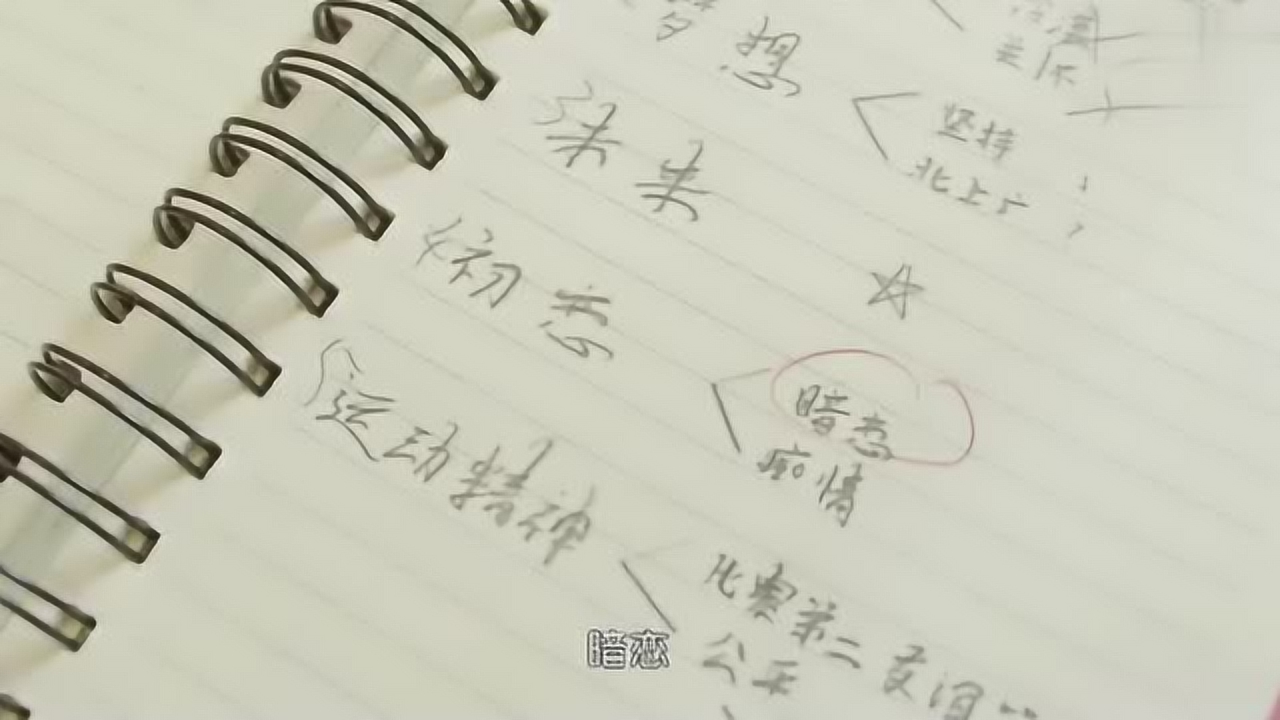 梦想
坚持
北上广
未来
初恋
暗恋
痴情
运动精神
比赛第二友谊第一
公平
暗恋